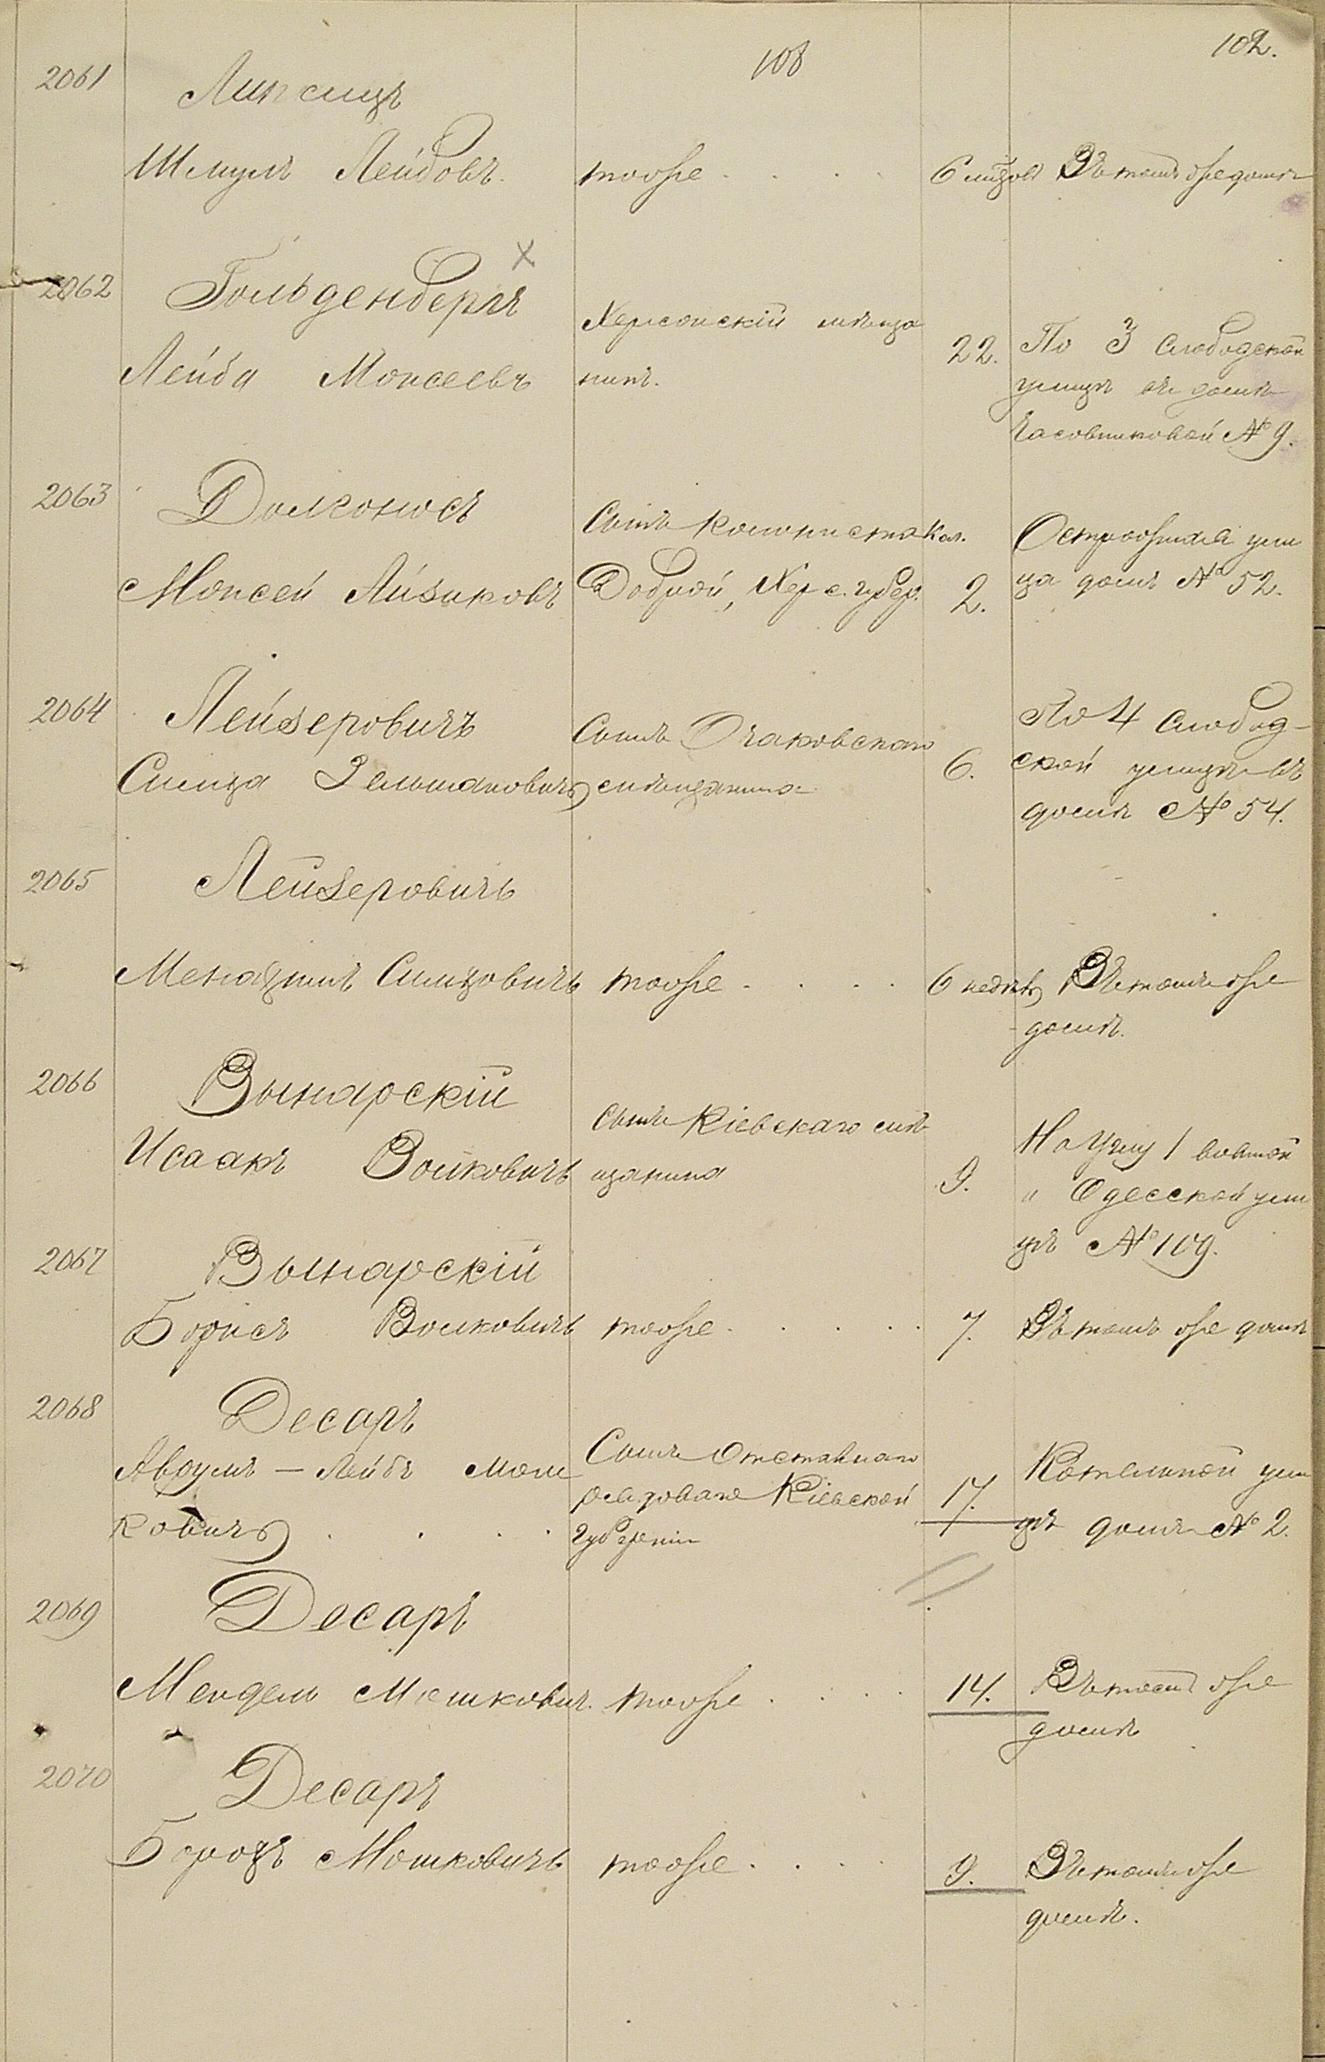 108
102.
2061
Липсицъ
Шмуль Лейбовъ.
тоже . . . .
6 мѣсов
Въ томъ же домѣ
2062
Гольденбергъ
Лейба Моисеевъ
Херсонскій мѣща
нинъ.
22.
По 3 Слободской
улицѣ въ домѣ
Часовниковой № 9.
2063
Долгоносъ
Моисей Айзиковъ
Сынъ колониста Кол.
Доброй, Херс. губер.
2.
Острожная ули
ца домъ № 52.
2064
Лейзеровичъ
Симха Зельмановичъ
Сынъ Очаковскаго
мѣщанина
6.
По 4 Слобод-
ской улицѣ въ
домѣ № 54.
2065
Лейзеровичъ
Симховичъ
тоже . . . .
6 недѣль
Въ томъ же
домѣ.
2066
Вынарскій
Исаакъ Волковичъ
сынъ Кіевскаго мѣ
щанина
9.
На углу 1
" Одесской ули
цѣ № 109.
2067
Вынарскій
Борисъ Волковичъ
тоже . . . . .
7.
Въ томъ же домѣ
2068
Десаръ
Аврумъ - Лейбъ Мош
ковичъ . . . .
Сынъ Отставнаго
рядоваго Кіевской
губерніи
17.
Котельной ули
цѣ домъ № 2.
2069
Десаръ
Мендель Мошкович.
тоже . . . .
14.
Въ томъ же
домѣ
2070
Десаръ
Борохъ Мошковичъ
тоже . . . .
9.
Въ томъ же
домѣ.